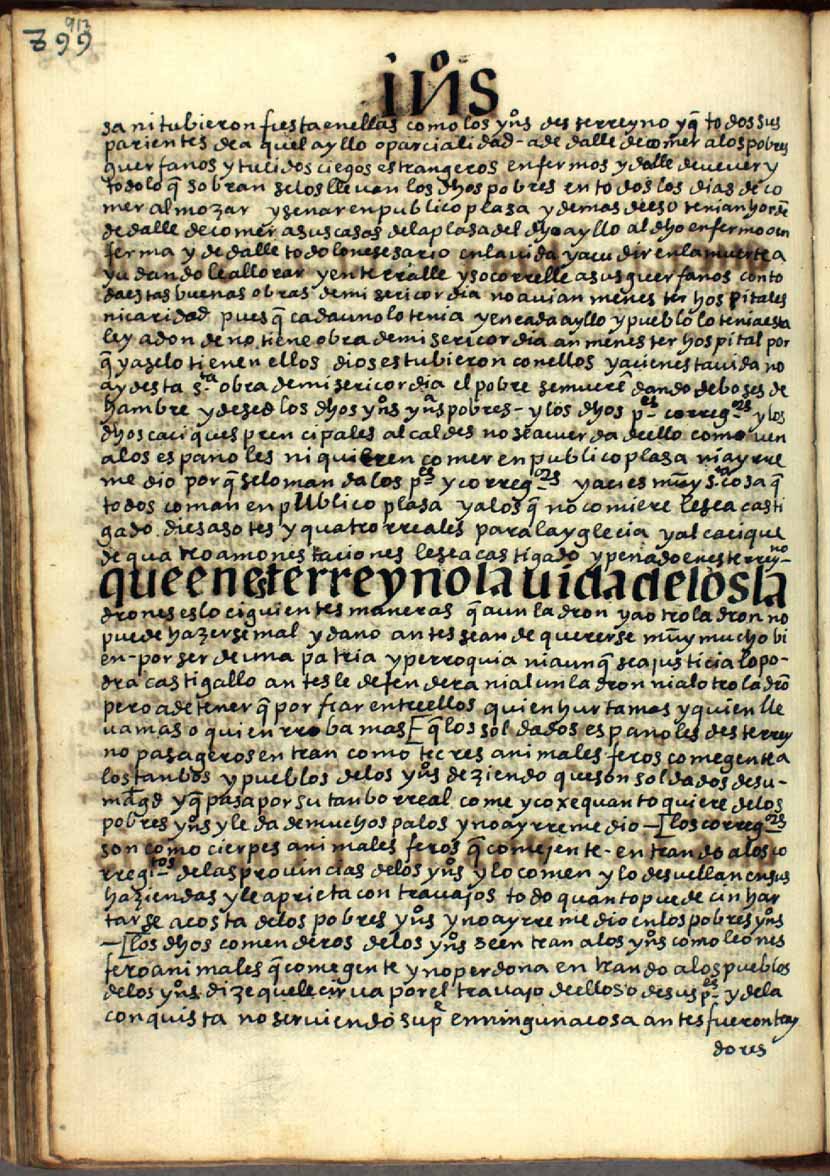 913
799
iños
sa ni tubieron fiesta en ellas como los yños des te rreyno y q̃ todos sus
parientes de aquel ayllo o parcialidad - a de dalle de comer a los pobres
guerfanos y tullidos ciegos estrangeros enfermos y dalle de uever y
todo lo q̃ sobran se los lleuan los dhos pobres en todos los dias de co
mer almozar y senar en publico plasa y demas de eso tenian horden
de dalle de comer a sus casas de la plasa del dho ayllo al dho enfermo o en
ferma y de dalle todo lo nesesario en la uida y acudir en la muerte a
yudandole a llorar y enterralle y socorrelle a sus guerfanos con to
da estas buenas obras de misericordia no auian menester hospitales
ni caridad pues q̃ cada uno lo tenia y en cada ayllo y pueblo lo tenia esta
ley adonde no tiene obra de misericordia an menester hospital por
q̃ ya se lo tienen ellos dios estubieron con ellos y aci en esta uida no
ay desta s.ta obra de misericordia el pobre se muere dando de boses de
hambre y de sed los dhos yños yñas pobres - y los dhos p.es correg.ors y los
dhos caciques prencipales alcaldes no se acuerda de ello como uen
a los espanoles ni quieren comer en publico plasa ni ay rre
medio por q̃ se lo manda los p.es y correg.ors y aci es muy s.ta cosa q̃
todos coman en publico plasa y a los q̃ no comiere le sea casti
gado diesasotes y quatro rreales para la yglecia y al cacique
de qua tro amonestaciones le sea castigado y penado en este rreyno
que en este rreyno la uida de los la
drones es lo ciguientes maneras q̃ a un ladron y a otro ladron no
puede hazerse mal y dano antes sean de quererse muy mucho bi
en - por ser de una patria y perroquia ni aunq̃ sea justicia lo po-
dra castigallo antes le defendera ni al un ladron ni al otro ladrõ
pero a de tener q̃ porfiar entre ellos quien hurta mas y quien lle
ua mas o quien rroba mas [q̃ los soldados espanoles des te rrey
no pasageros entran como tecres animales feros come gente a
los tanbos y pueblos de los yños deziendo que son soldados de su -
mag.d y q̃ pasa por su tanbo rreal come y coxe quanto quiere de los
pobres yños y le da de muchos palos y no ay rremedio - [los correg.ors
son como cierpes animales feros q̃ come jente - entrando a los co
rregi.tos de las prouincias de los yños y lo comen y lo desuellan en sus
haziendas y le aprieta con trauajos todo quanto puede cin har
tarse a costa de los pobres yños y no ay rremedio en los pobres yños
- [los dhos comenderos de los yños se entran a los yños como leones
fero animales q̃ come gente y no perdona entrando a los pueblos
de los yños dize que le cirua por el trauajo de ellos o de sus p.es y de la
conquista no seruiendo su p.e en ninguna cosa antes fueron tray
dores